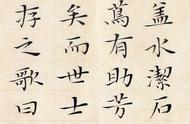 盖水潔石
有助芳
矣而世士
存之歌曰